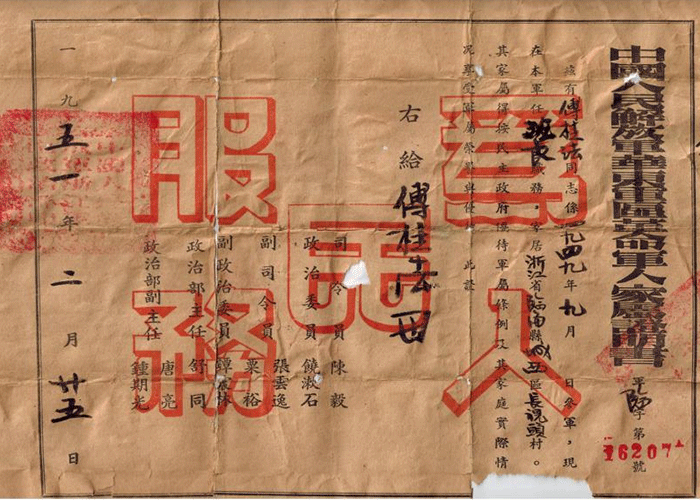 中國人民解放軍華東軍區革命軍人家屬證明書
字第16207號
茲有傅桂法同志係一九四九年九月 日參軍，現
在本軍任班長職務。家居浙江省臨海縣城五區長頭村。
其家屬得按民主政府優待軍屬條例及其家庭實際情
況享受軍屬榮譽與優 此證
右給 傅桂法
司令員 陳毅
政治委員 饒漱石
副司令員 張雲逸
粟裕
副政治委員 譚震林
政治部主任 舒同
政治部副主任 唐亮
鍾期光
一九五一年二月廿五日
為人民服務